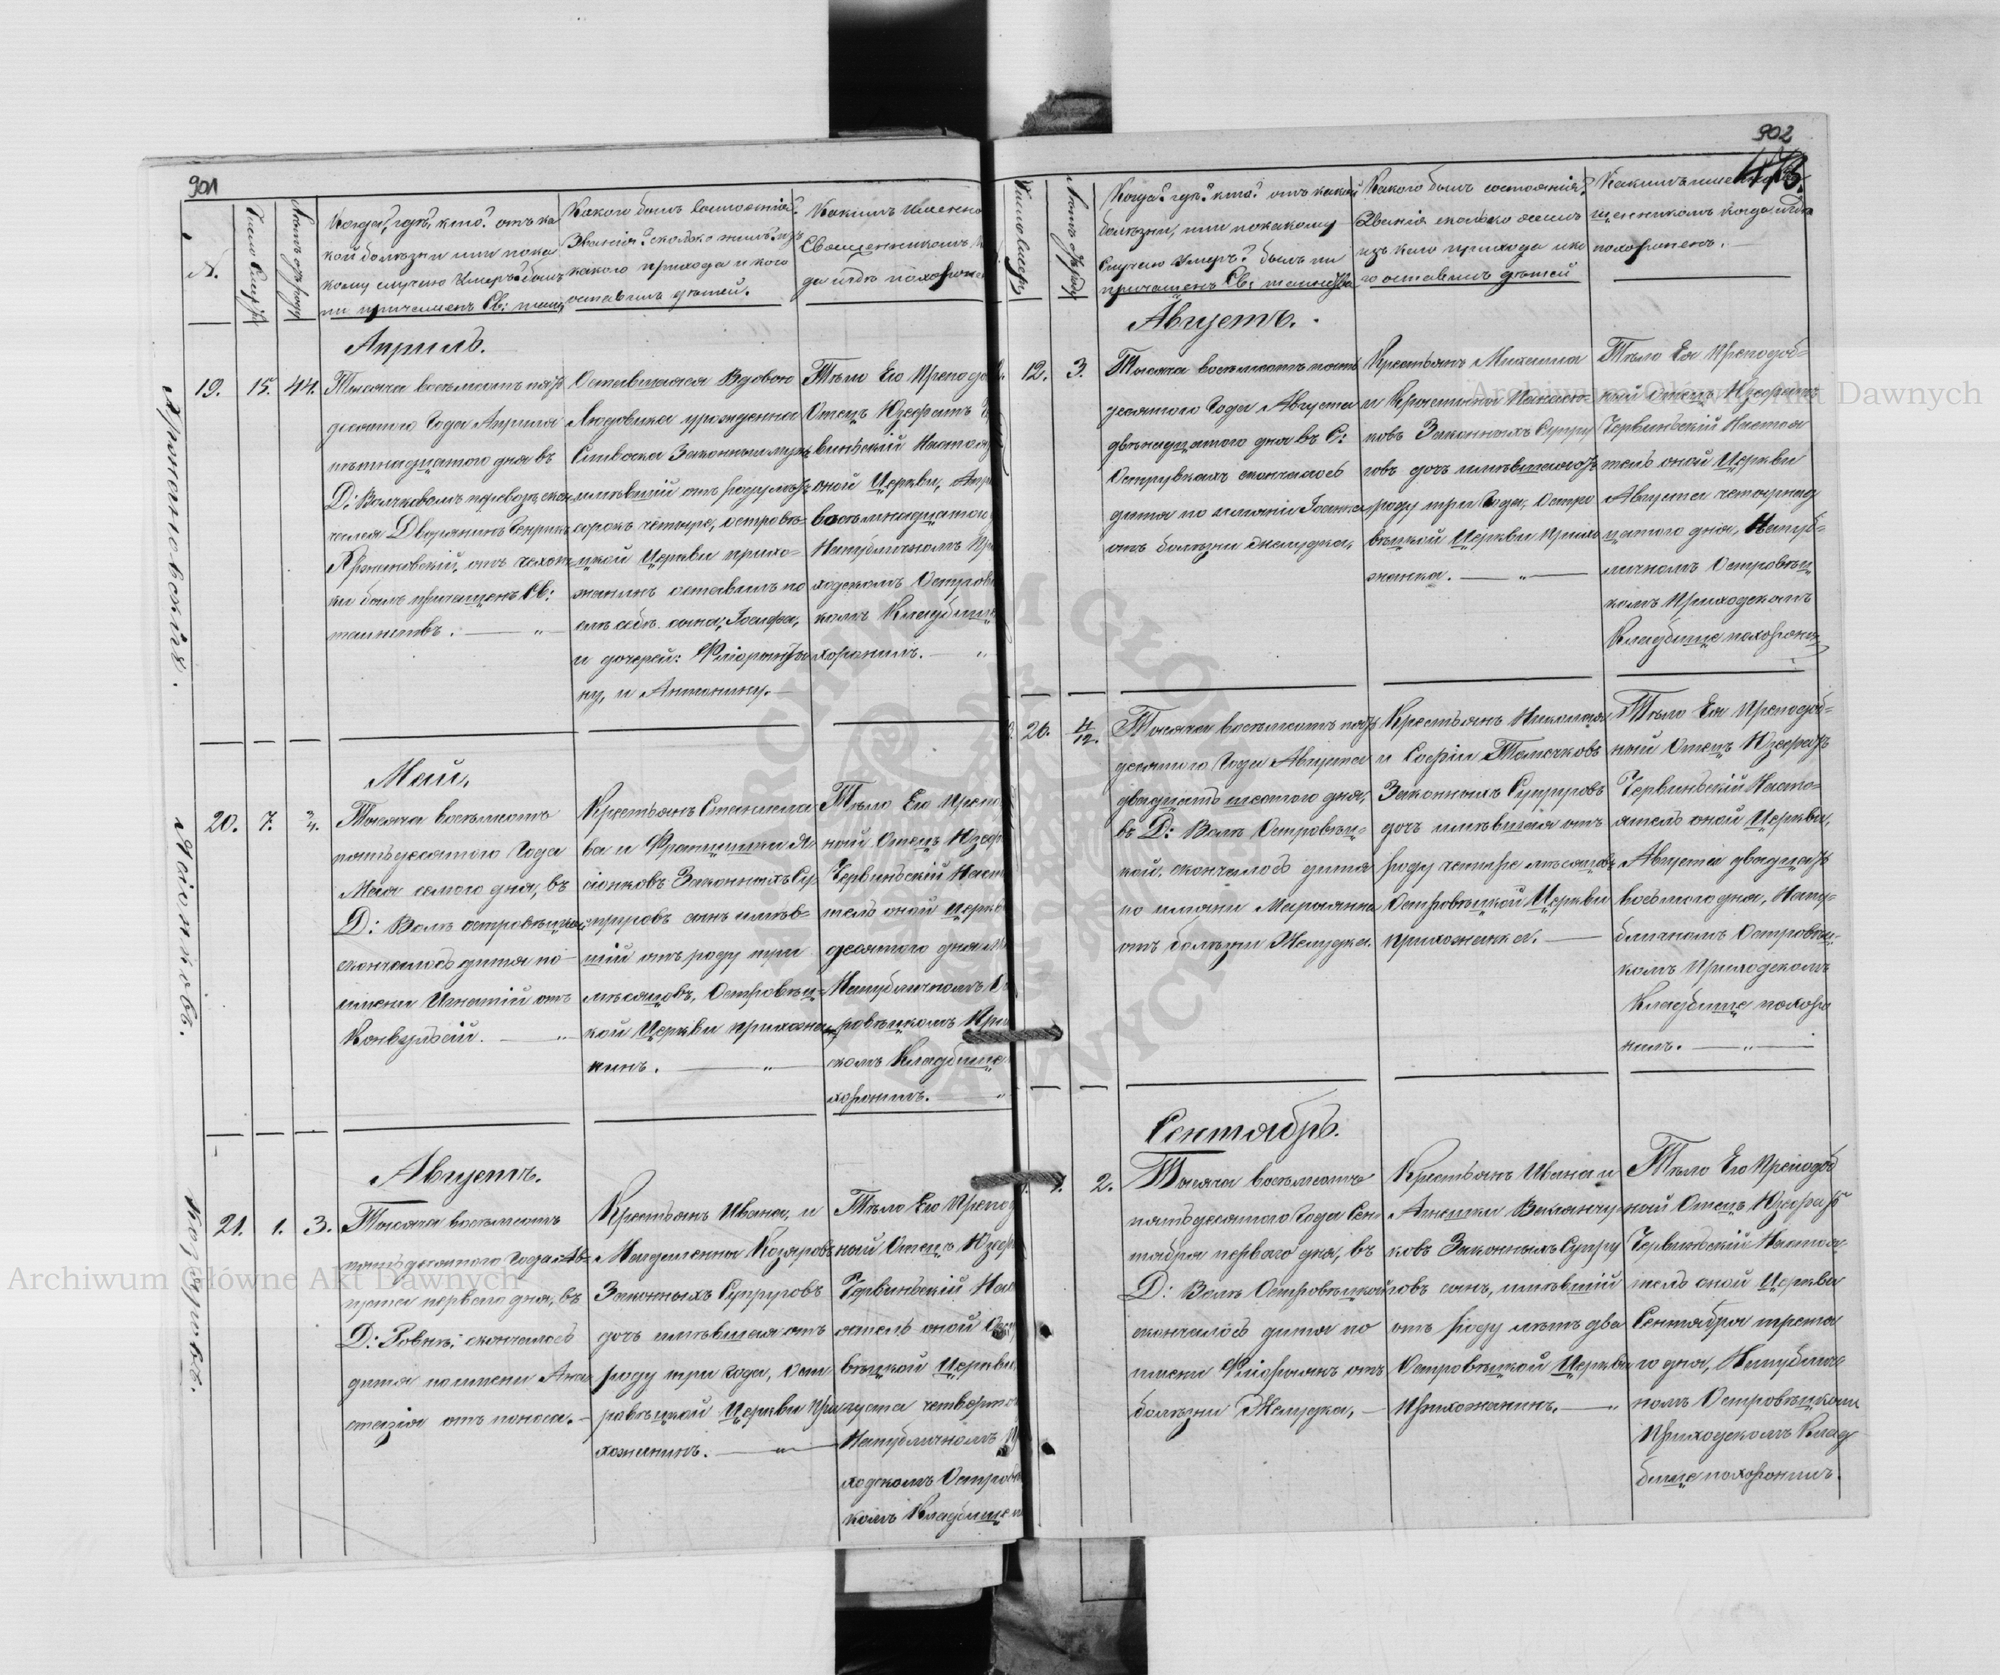 901
№.
Число Смер.
Лѣтъ отъ роду
Когда? гдѣ? кто? отъ ка
кой болѣзни или по ка
кому случаю Умеръ? былъ
ли причащенъ Св: таин,
Какого былъ Состоянія?
Званія? сколько жилъ? изъ
какого прихода и кого
оставилъ дѣтей.
Какимъ Именно
Священникомъ, к
да и гдѣ похороне
Апрѣль.
19.
15.
44.
Тысяча восемьсотъ пядъ
десятого Года Апрѣля
пятнадцатого дня въ
Д: перевозъ, скон
чался Дворянинъ Генрикъ
отъ чехот
ки былъ причащенъ Св:
таинствъ. — „ —
Оставшаяся Вдовою
Людовика урожденна
Законный мужъ
имѣвшій отъ роду лѣтъ
сорокъ четыре, островѣ-
цкой Церкви прихо-
жанинъ оставилъ по
слѣ себѣ сына, Іосифа,
и дочерей:
ну, и Антонину. —
Тѣло Его Преподо
Отецъ Юзефатъ Ч
виньскій Настоя
оной Церкви, Апр
восемьнадцатого
На публичномъ Пр
ходскомъ Островѣ
комъ Кладбище
хоронилъ. — „
Май,
20.
7.
3/4.
Тысяча восемьсотъ
пятьдесятого Года
Мая семого дня, въ
Д: Волѣ островѣцкой
скончалось дитя по
имени Игнатій отъ
Конвульсій. — „
Крестьянъ Станисла
ва и Францишки Я
сіонковъ Законныхъ Су
пруговъ сынъ имѣв-
шій отъ роду три
мѣсяцовъ, Островѣц-
кой Церкви прихожа
нинъ. — „ —
Тѣло Его Препо
ный Отецъ Юзеф
Червиньскій Наст
тель оной Церкв
десятого дня М
На публичномъ Ос
ровѣцкомъ При
скомъ Кладбище
хоронилъ. „
Августъ.
21.
1.
3.
Тысяча восемьсотъ
пятьдесятого Года Ав-
густа первого дня, въ
Д: Ровнѣ; скончалось
дитя по имени Ана
стазія отъ поноса. —
Крестьянъ Ивана, и
Магдалены Козяровъ
Законныхъ Супруговъ
дочь имѣвшая отъ
роду три Года, Ост
ровѣцкой Церкви При
хожанинъ. — „ —
Тѣло Его Препод
ный Отецъ Юзеф
Червиньскій Нас
оятель оной Ост
вѣцкой Церкви,
густа четвертог
На публичномъ П
ходскомъ Островѣ
комъ Кладбище п
902
Число Смер.
Лѣтъ отъ роду
Когда? гдѣ? кто? отъ какой
болѣзни, или по какому
Случаю Умеръ? былъ ли
причащенъ Св: таинства
Какого былъ состоянія?
Званія сколько жилъ
изъ кого прихода и ко
го оставилъ дѣтей
Какимъ именно
щенникомъ Когда, и гдѣ
похороненъ. —
Августъ.
12.
3.
Тысяча восемьсотъ пять
десятого Года Августа
двѣнадцатого дня въ С:
Острувкахъ скончалось
дитя по имени Іоанна
отъ болѣзни Желудка,
Крестьянъ Михаила
и Кристины
ковъ Законныхъ Супру
говъ дочь имѣвшая отъ
роду три Года, Остро
вѣцкой Церкви Прихо
жанка. — „ —
Тѣло Ея Преподоб-
ный Отецъ Юзефатъ
Червиньскій Настоя
тель оной Церкви
Августа четырнад
цатого дня, На пуб-
личномъ Островѣц
комъ Приходскомъ
Кладбище похорони
26.
4/12.
Тысяча восемьсотъ пядъ
десятого Года Августа
двадцать шестого дня,
въ Д: Волѣ Островѣц-
кой, скончалось дитя
по имяни Марианна
отъ болѣзни Желудка.
Крестьянъ Николая
и Софіи Томечковъ
Законныхъ Супруговъ
дочь имѣвшая отъ
роду четыре мѣсяцовъ
Островѣцкой Церкви
прихожанка. —
Тѣло Ея Преподоб-
ный Отецъ Юзефатъ
Червиньскій Насто-
ятель оной Церкви,
Августа двадцать
восьмого дня, На пу-
бличномъ Островѣц-
комъ Приходскомъ
Кладбище похоро
нилъ. — „ —
Сентябрь.
1.
2.
Тысяча восемьсотъ
пятьдесятого Года Сен
тября первого дня, въ
Д: Волѣ Островѣцкой
скончалось дитя по
имени Флоріянъ отъ
болѣзни Желудка, —
Крестьянъ Ивана и
Агнешки
ковъ Законныхъ Супру
говъ сынъ, имѣвшій
отъ роду лѣтъ два
Островѣцкой Церкви
Прихожанинъ. — „
Тѣло Его Преподоб
ный Отецъ Юзефатъ
Червиньскій Настоя-
тель оной Церкви
Сентября третя
го дня, На публич
номъ Островѣцкомъ
Приходскомъ Клад
бище похоронилъ.
Archiwum Główne Akt Dawnych
Archiwum Główne Akt Dawnych